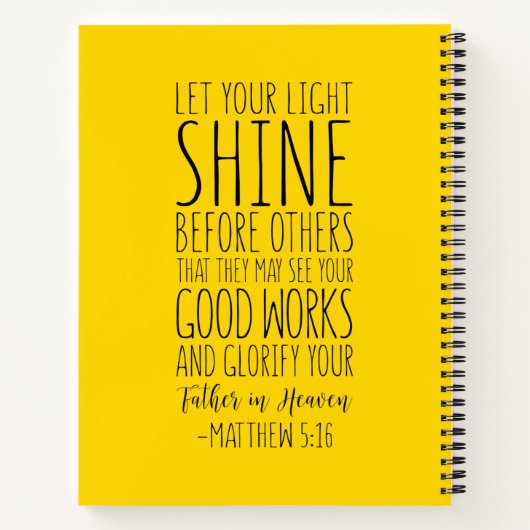 LET YOUR LIGHT
SHINE
BEFORE OTHERS
THAT THEY MAY SEE YOUR
GOOD WORKS
AND GLORIFY YOUR
Father in Heaven
-MATTHEW 5:16